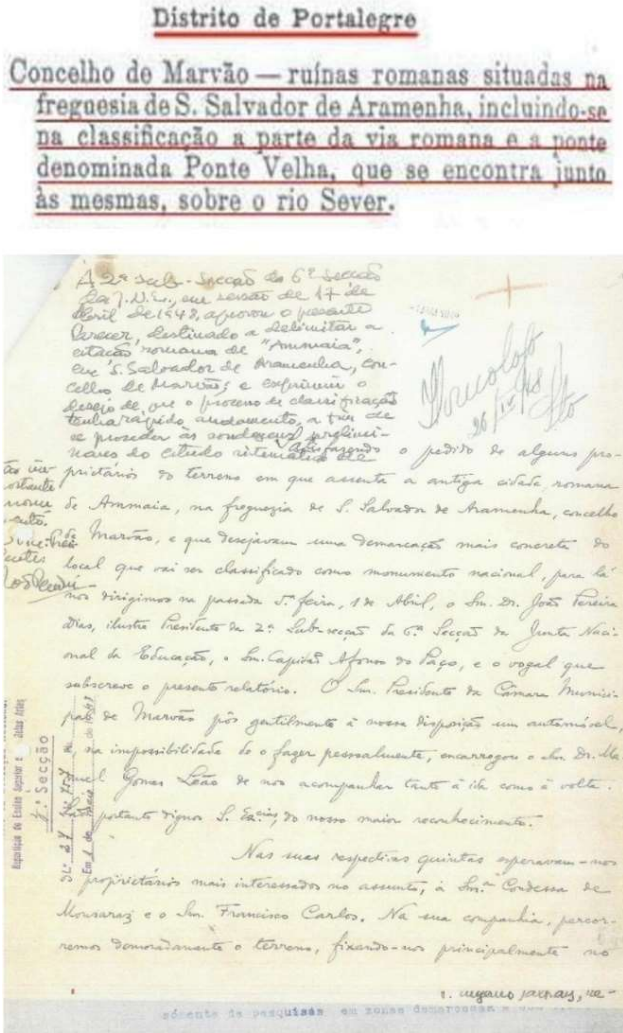 Distrito de Portalegre
Concelho de Marvão — ruínas romanas situadas na
freguesia de S. Salvador de Aramenha, incluindo-se
na classificação a parte da via romana e a ponte
denominada Ponte Velha, que se encontra junto
às mesmas, sobre o rio Sever.
A 2ª Sub-Secção da 6ª Secção
da J.N.E., em sessão de 17 de
Abril de 1948, aprovou o presente
Parecer, destinado a delimitar a
citação romana de "Ammaia",
em S. Salvador de Aramenha, con-
celho de Marvão; e exprimiu o
desejo de que o processo de classificação
tenha rápido andamento, a fim de
se proceder às sondagens prelimi-
nares do estudo sistemático de
Homologo
26/IV/48
Satisfazendo o pedido de alguns pro-
prietários do terreno em que assenta a antiga cidade romana
de Ammaia, na freguezia de S. Salvador de Aramenha, concelho
de Marvão, e que desejavam uma demarcação mais concreta do
local que vai ser classificado como monumento nacional, para lá
nos dirigimos na passada 5ª feira, 1 de Abril, o Snr. Dr. João Pereira
Dias, ilustre Presidente da 2ª Sub-secção da 6ª Secção da Junta Naci-
onal da Educação, o Snr. Capitão Afonso do Paço, e o vogal que
subscreve o presente relatório. O Snr. Presidente da Câmara Munici-
pal de Marvão pôs gentilmente à nossa disposição um automóvel,
e, na impossibilidade de o fazer pessoalmente, encarregou o Snr. Dr. Ma
nuel Gomes Leão de nos acompanhar tanto à ida como à volta.
São portanto dignos S. Ex.cias, do nosso maior reconhecimento.
Nas suas respectivas quintas esperavam-nos
os proprietários mais interessados no assunto, a Snr.ª Condessa de
Monsaraz e o Snr. Francisco Carlos. Na sua companhia, percor-
remos demoradamente o terreno, fixando-nos principalmente no
Repartição do Ensino Superior e Belas Artes
Secção
Em 1 de maio de
sómente de pesquisas em zonas demarcadas